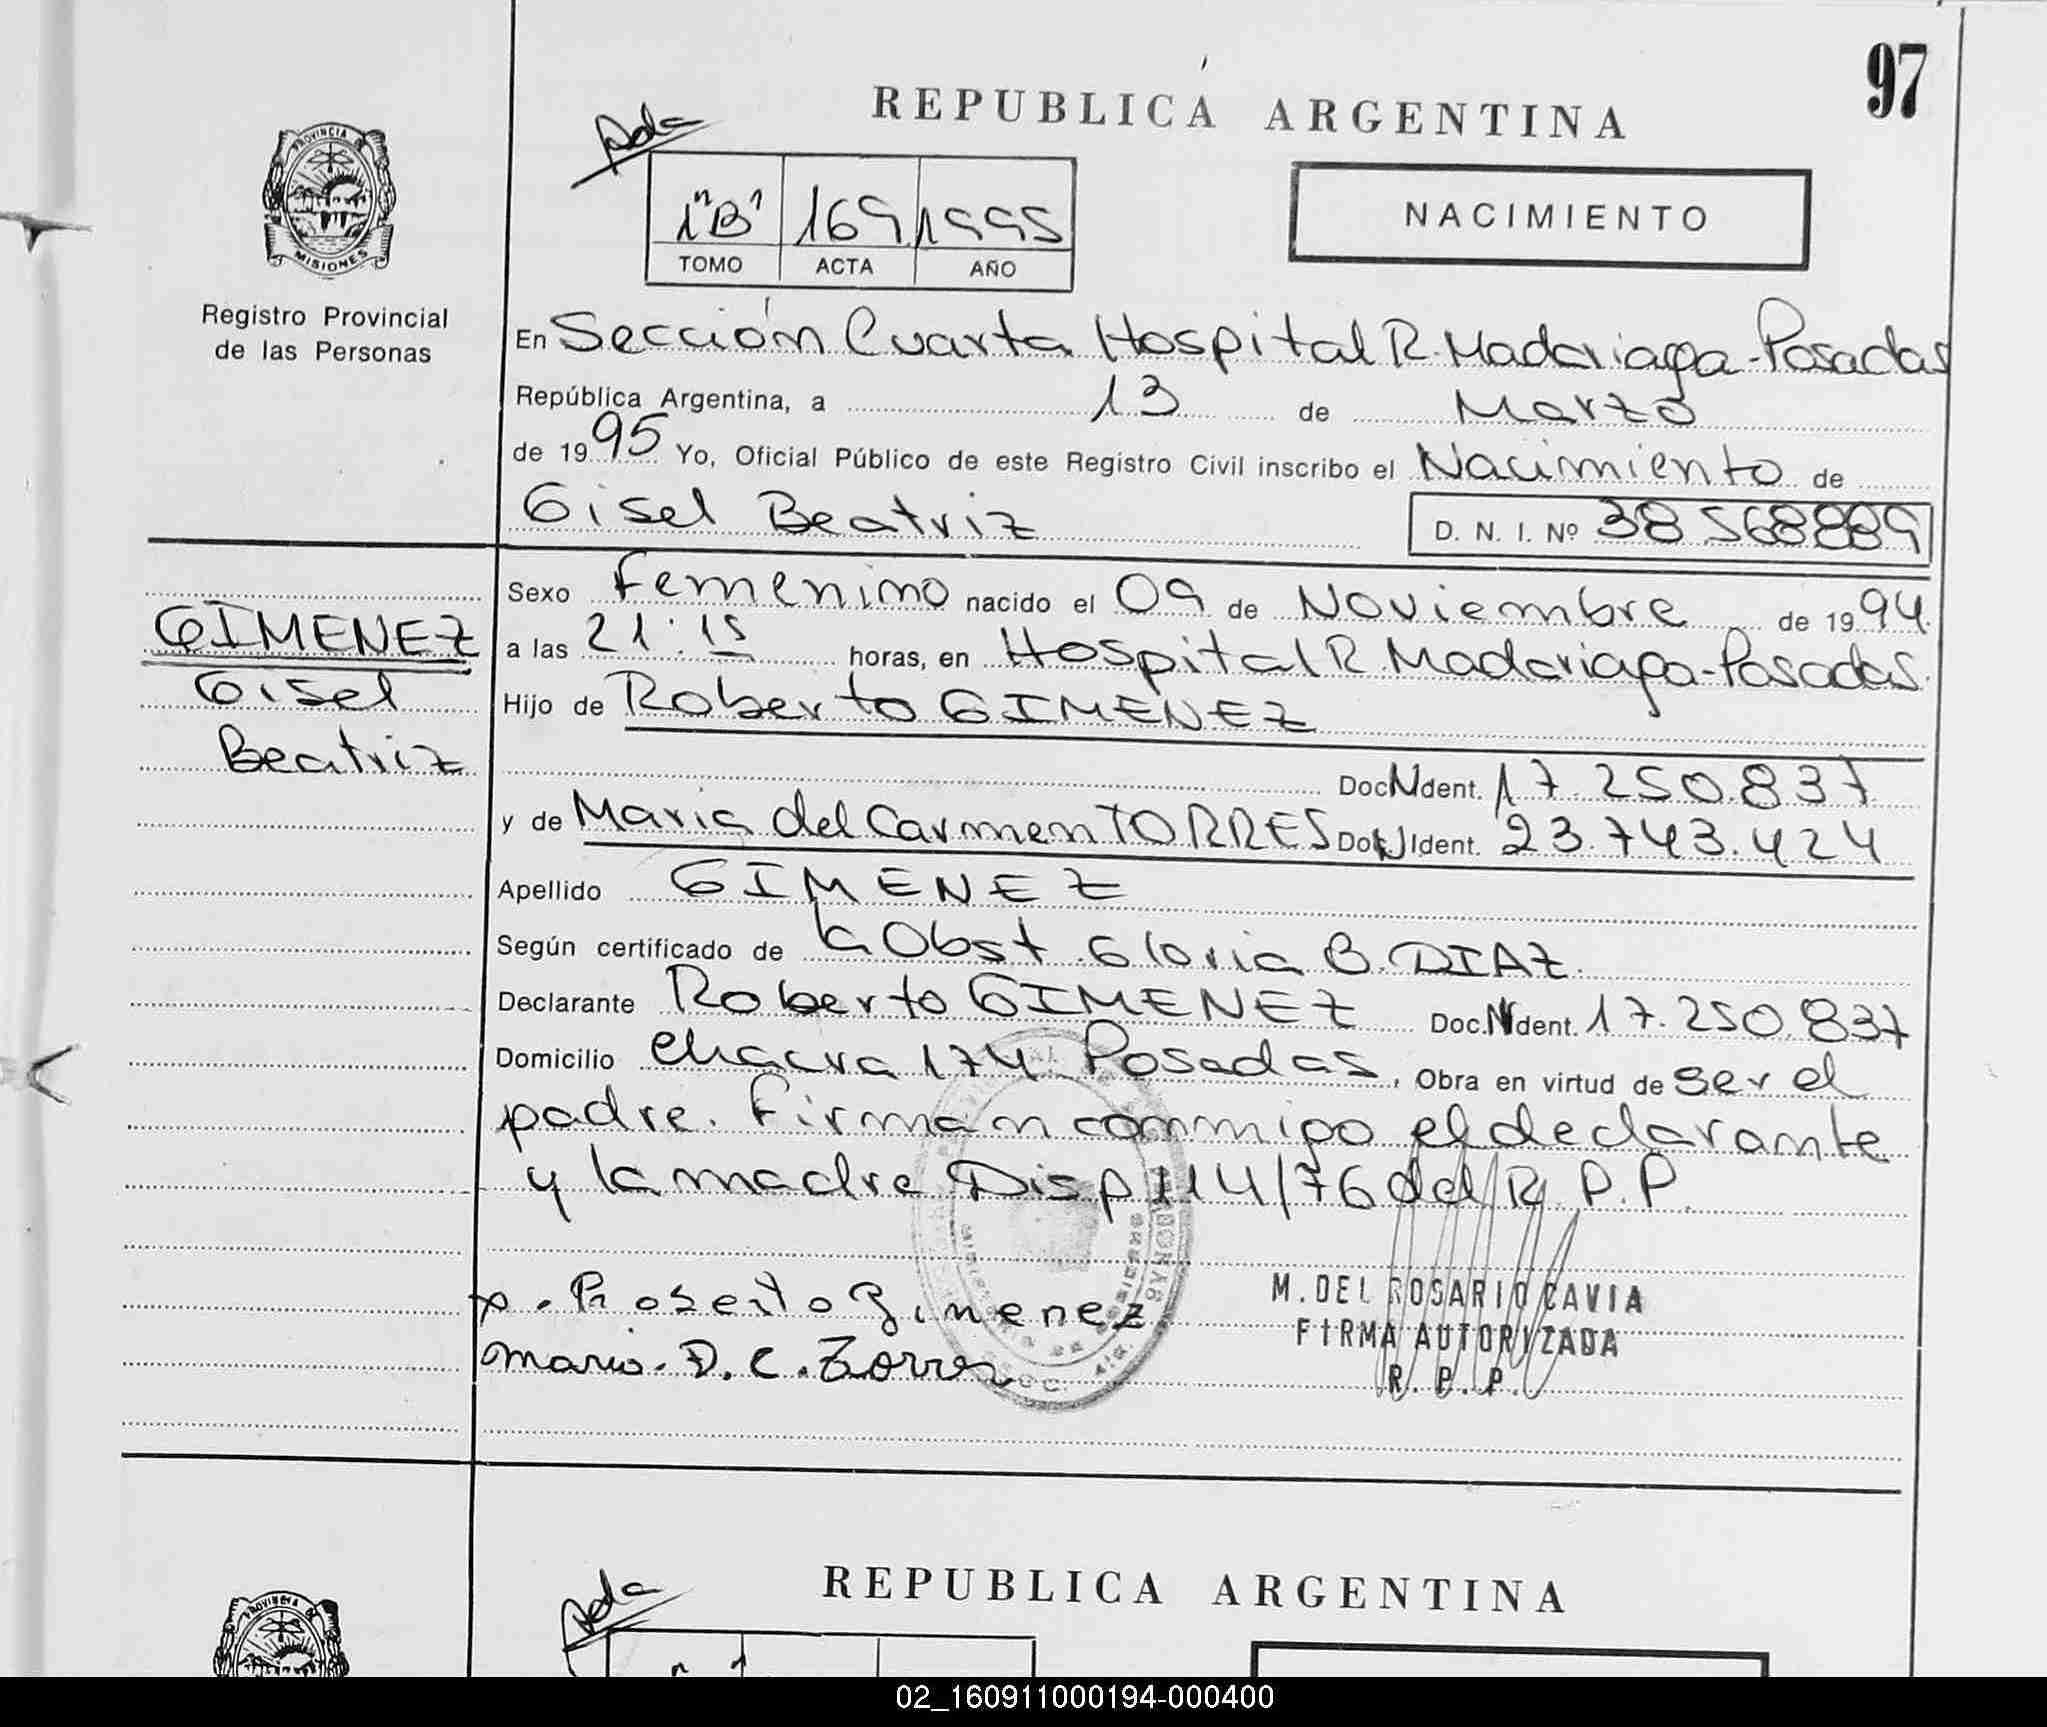 97
REPUBLICA ARGENTINA
PROVINCIA DE
MISIONES
Registro Provincial
de las Personas
1"B" 169 1995
TOMO ACTA AÑO
NACIMIENTO
En Sección Cuarta Hospital R. Madariaga-Posadas
República Argentina, a 13 de Marzo
de 1995 Yo, Oficial Público de este Registro Civil inscribo el Nacimiento de
Gisel Beatriz D. N. I. Nº 38568889
GIMENEZ
Gisel
Beatriz
Sexo Femenino nacido el 09 de Noviembre de 1994.
a las 21:15 horas, en Hospital R. Madariaga-Posadas.
Hijo de Roberto GIMENEZ
Doc. N Ident. 17.250.837
y de Maria del Carmen TORRES Doc. N Ident. 23.743.424
Apellido GIMENEZ
Según certificado de la Obst. Gloria B. DIAZ.
Declarante Roberto GIMENEZ Doc. N Ident. 17.250.837
Domicilio chacra 174 Posadas, Obra en virtud de ser el
padre. Firman conmigo el declarante
y la madre Disp 114/76 del R.P.P.
x. Roberto Gimenez
Maria. D. C. Torres
M. DEL ROSARIO CAVIA
FIRMA AUTORIZADA
R. P. P.
REPUBLICA ARGENTINA
PROVINCIA DE
02_160911000194-000400